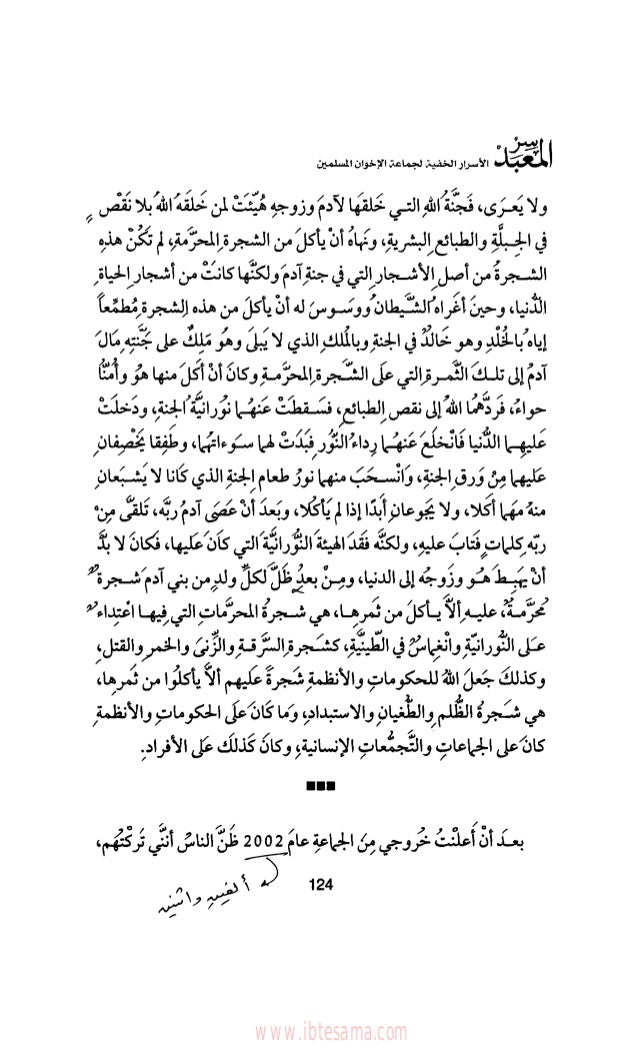 سِرُّ المَعبَدْ الأسرار الخفية لجماعة الإخوان المسلمين
ولا يَعرَى، فَجنَّةُ اللهِ التي خَلقهَا لآدمَ وزوجهِ هُيِّئَتْ لمن خَلقَهُ اللهُ بلا نَقْصٍ
في الجِبلَّةِ والطبائعِ البشرية، ونَهاهُ أنْ يأكلَ من الشجرةِ المحرَّمَةِ، لم تَكُنْ هذهِ
الشجرةُ من أصلِ الأشجارِ التي في جنةِ آدمَ ولكنَّها كانَتْ من أشجارِ الحياةِ
الدُّنيا، وحينَ أغراهُ الشَّيطانُ ووَسوسَ له أنْ يأكلَ من هذه الشجرةِ مُطمِّعاً
إياه بالخُلْدِ وهو خَالدٌ في الجنةِ وبالمُلكِ الذي لا يَبلىَ وهُو مَلِكٌ على جَنَّتهِ مَالَ
آدمُ إلى تلكَ الثَّمرةِ التي علَى الشَّجرةِ المحرَّمةِ وكانَ أنْ أكلَ منها هُو وأُمُّنَا
حواءُ، فَردَّهُما اللهُ إلى نقصِ الطبائعِ، فسَقطَتْ عَنهُما نورانيَّةُ الجنةِ، ودَخلَتْ
عَليهِما الدُّنيا فَانْخلَعَ عَنهُما رِداءُ النُّورِ فَبدَتْ لهما سوءاتُهما، وطَفِقا يَخْصِفانِ
عَليهِما مِنْ وَرقِ الجنةِ، وَانْسحَبَ منهما نورُ طعامِ الجنةِ الذي كَانا لا يَشبَعانِ
منهُ مَهما أكلا، ولا يَجوعانِ أبدًا إذا لم يَأكُلا، وبَعدَ أنْ عَصَى آدمُ ربَّه، تَلقَّى مِنْ
ربِّه كلماتٍ فتَابَ عليهِ، ولكنَّه فقَدَ الهيئةَ النُّورانيَّةَ التي كَانَ عَليها، فَكانَ لا بُدَّ
أنْ يَهبِطَ هُو وَزوجُه إلى الدنيا، ومِنْ بعدُ ظَلَّ لكلِّ ولدٍ من بني آدمَ شجرةٌ
مُحرَّمةٌ، عليهِ ألاَّ يأكلَ من ثَمرِها، هي شجرةُ المحرَّماتِ التي فِيها اعْتِداءٌ
علَى النُّورانيّةِ وانْغِماسٌ في الطِّينيَّةِ، كشَجرةِ السَّرقةِ والزِّنىَ والخمرِ والقتلِ،
وكذلكَ جَعلَ اللهُ للحكوماتِ والأنظمةِ شجرةً عَليهم ألاَّ يأكلُوا من ثَمرِها،
هي شجرةُ الظُّلمِ والطُّغيانِ والاستبدادِ، وَما كَانَ عَلى الحكوماتِ والأنظمةِ
كانَ على الجماعاتِ والتَّجمُّعاتِ الإنسانيةِ، وكانَ كَذلكَ عَلى الأفرادِ.
■■■
بعدَ أنْ أعلنْتُ خُروجي مِنَ الجماعةِ عامَ 2002 ظَنَّ الناسُ أنَّنِي تَركتُهُم،
ألفين واثنين
124
www.ibtesama.com